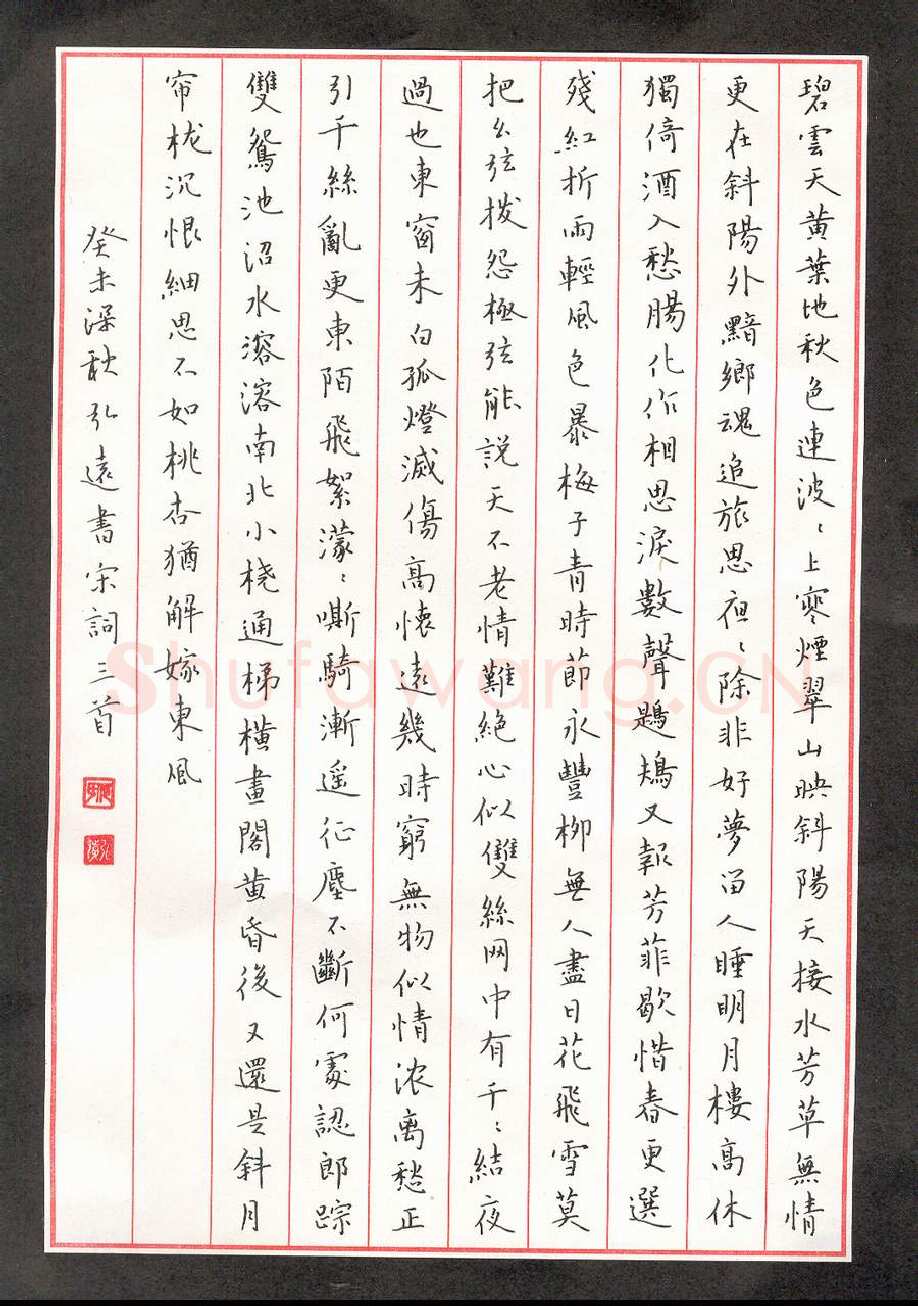 碧雲天黄葉地秋色連波〻上寒煙翠山映斜陽天接水芳草無情
更在斜陽外黯鄉魂追旅思夜〻除非好夢留人睡明月樓高休
獨倚酒入愁腸化作相思淚數聲鶗鴂又報芳菲歇惜春更選
殘紅折雨輕風色暴梅子青時節永豐柳無人盡日花飛雪莫
把幺弦撥怨極弦能説天不老情難絶心似雙絲网中有千〻結夜
過也東窗未白孤燈滅傷高懷遠幾時窮無物似情浓离愁正
引千絲亂更東陌飛絮濛〻嘶騎漸遥征塵不斷何處認郎踪
雙鴛池沼水溶溶南北小桡通梯横畫閣黄昏後又還是斜月
帘栊沉恨細思不如桃杏猶解嫁東風
癸未深秋弘遠書宋詞三首
Shufawang.CN